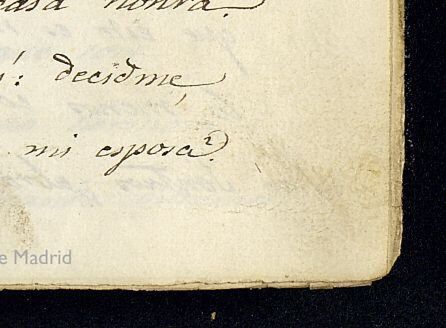 casa honra.
í: decidme
mi esposa?
e Madrid